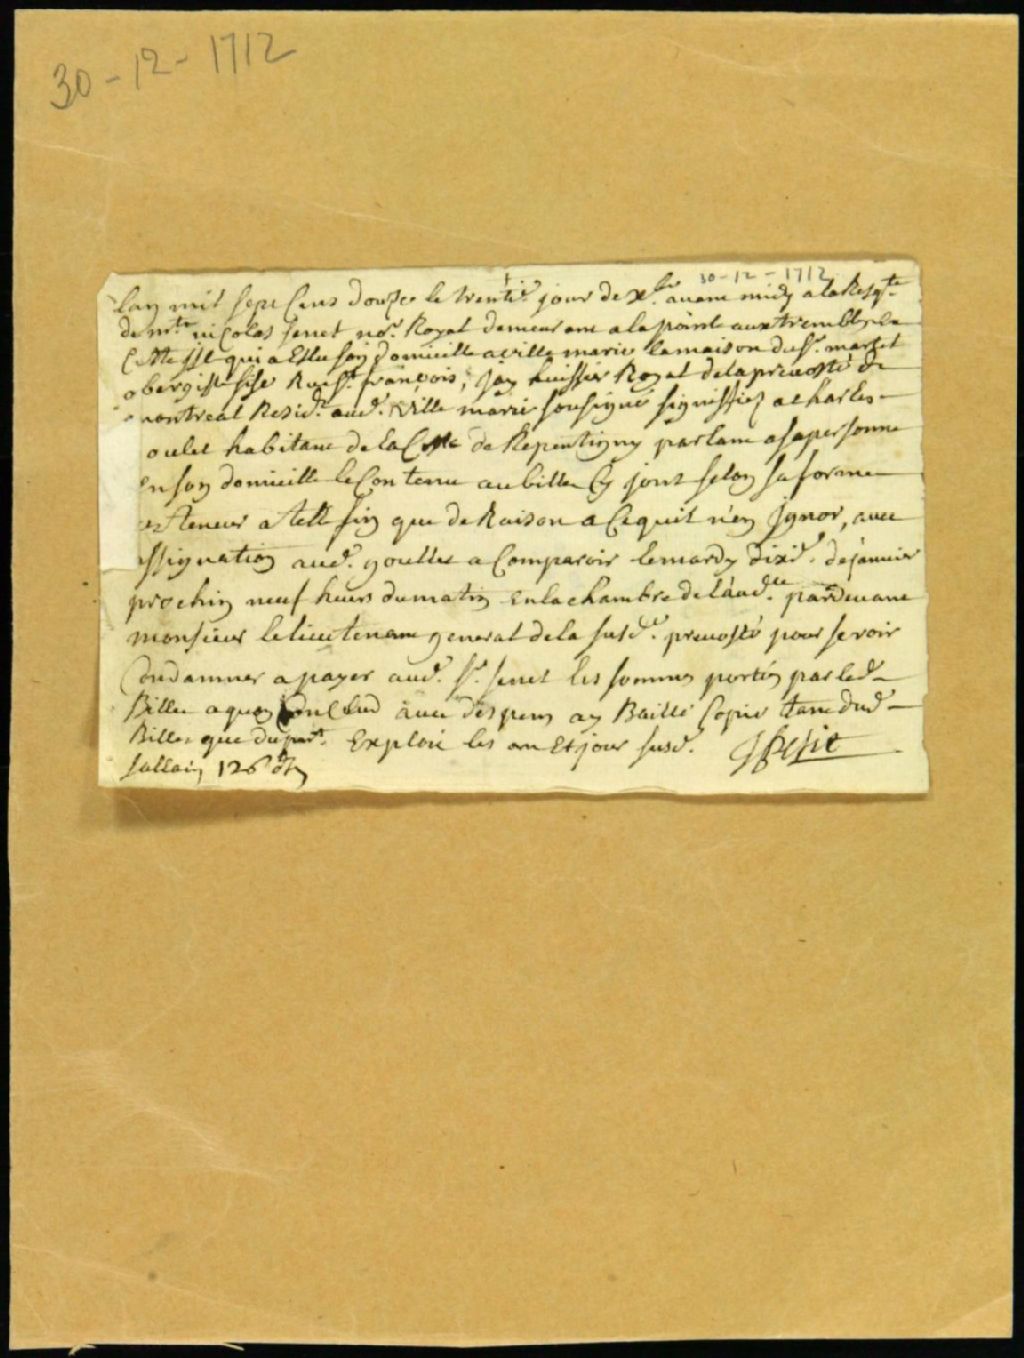 30-12-1712
30-12-1712
Lan mil sept Cens douze le trentie. jour de xbre. avant midy a la Reqte.
de mre. nicolas senet nore. Royal demeurant a la pointe aux trembles de
Cette isle qui a Esleu son domicille a ville marie la maison du Sr.
obergiste sise Rue St. françois, Jay huissier Royal de la prevosté de
montreal Residt. aud. Ville marie sousigné signiffiez a Charles
oulet habitant de la Coste de Repentigny parlant a sa personne
en son domicille le Contenu au billet Cy joint selon sa forme
et teneur a telle fin que de Raison a Ce quil n'en Ignor, avec
assignation aud. goullet a Comparoir le mardy dixe. de janvier
prochin neuf heurs du matin en la chambre de l'aud.ce pardevant
monsieur le lieutenant general de la susde. prevosté pour se voir
Condamner a payer aud. Sr. senet les sommes portés par led.
Billet a quoy Conclud avec despens ay Baillé Copie tant dud.
Billet que du pnt. Exploit les an Et jour susd. Petit
sallair